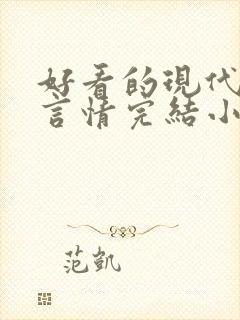 好看的現代
言情完結小
范凱